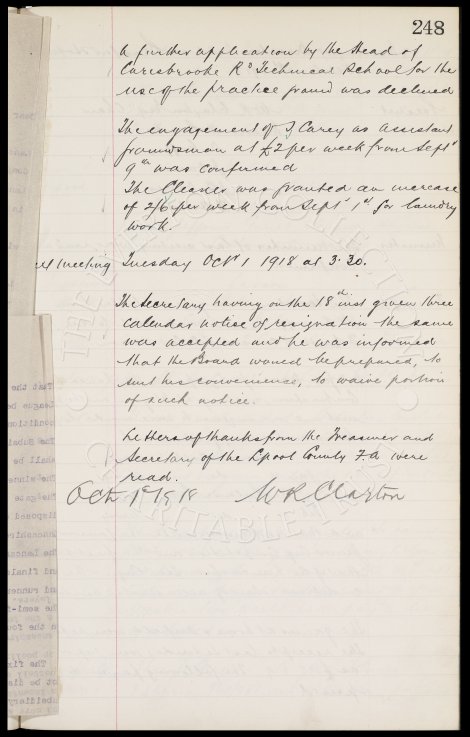 248
A further application by the Head of
Carisbrooke Rd Technical School for the
use of the practice ground was declined
The engagement of J Carey as assistant
groundsman at £2 per week from Septr
9th was confirmed
The Cleaner was granted an increase
of 2/6 per week from Septr 1st for laundry
work.
Next meeting Tuesday Octr 1 1918 at 3.30.
The Secretary having on the 18th inst given three
calendar notice of resignation the same
was accepted and he was informed
that the Board would be prepared, to
suit his convenience, to waive portion
of such notice.
Letters of thanks from the Treasurer and
Secretary of the Lpool County F.A. were
read.
Oct 1st 1918 W R Clayton
CHARITABLE TRUST
COLLECTION